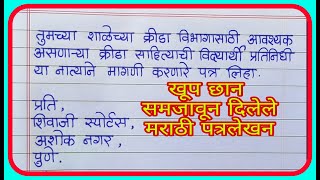 तुमच्या शाळेच्या क्रीडा विभागासाठी आवश्यक
असणाऱ्या क्रीडा साहित्याची विद्यार्थी प्रतिनिधी
या नात्याने मागणी करणारे पत्र लिहा.
प्रति,
शिवाजी स्पोर्टस,
अशोक नगर,
पुणे.
खूप छान
समजावून दिलेले
मराठी पत्रलेखन